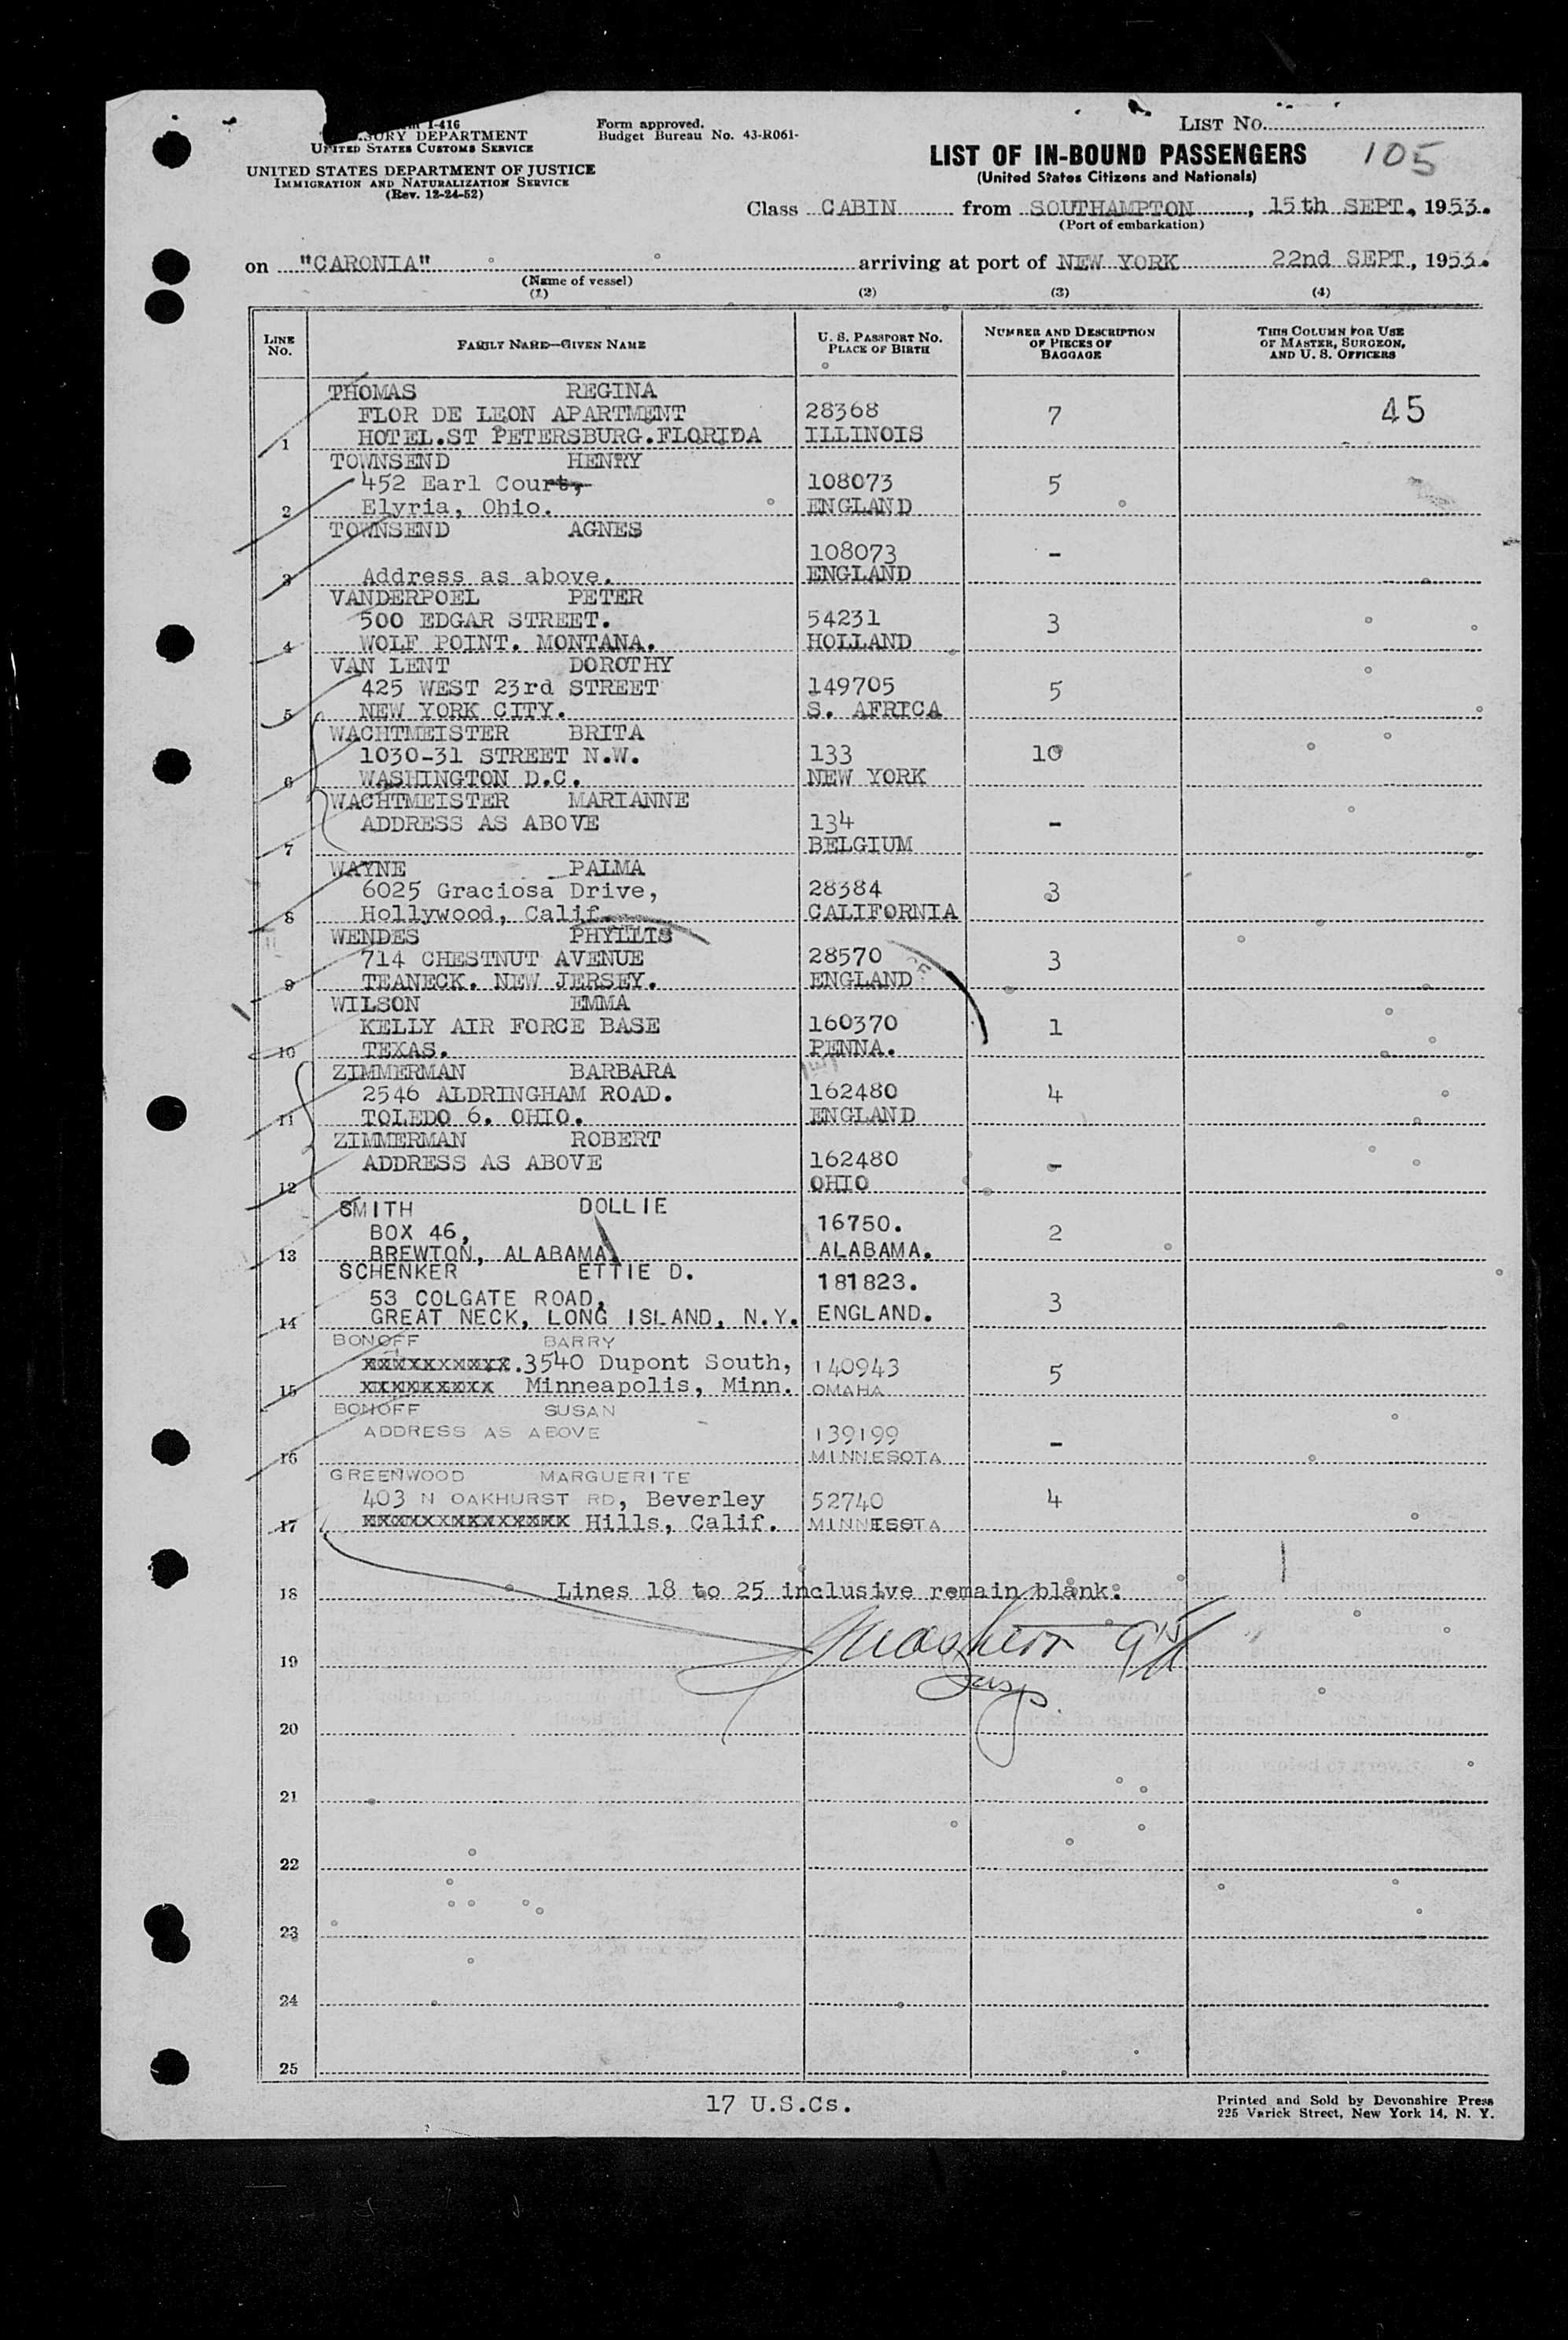 I-416
DEPARTMENT
UNITED STATES CUSTOMS SERVICE
UNITED STATES DEPARTMENT OF JUSTICE
IMMIGRATION AND NATURALIZATION SERVICE
(Rev. 12-24-52)
Form approved.
Budget Bureau No. 43-R061-
LIST NO.
LIST OF IN-BOUND PASSENGERS 105
(United States Citizens and Nationals)
Class CABIN from SOUTHAMPTON, 15th SEPT., 1953.
(Port of embarkation)
on "CARONIA" arriving at port of NEW YORK 22nd SEPT, 1953.
(Name of vessel)
(1) (2) (3) (4)
LINE NO. FAMILY NAME—GIVEN NAME U. S. PASSPORT NO. PLACE OF BIRTH NUMBER AND DESCRIPTION OF PIECES OF BAGGAGE THIS COLUMN FOR USE OF MASTER, SURGEON, AND U. S. OFFICERS
THOMAS REGINA
FLOR DE LEON APARTMENT 28368 7 45
1 HOTEL.ST PETERSBURG.FLORIDA ILLINOIS
TOWNSEND HENRY
452 Earl Court, 108073 5
2 Elyria, Ohio. ENGLAND
TOWNSEND AGNES
108073 -
3 Address as above. ENGLAND
VANDERPOEL PETER
500 EDGAR STREET. 54231 3
4 WOLF POINT. MONTANA. HOLLAND
VAN LENT DOROTHY
425 WEST 23rd STREET 149705 5
5 NEW YORK CITY. S. AFRICA
WACHTMEISTER BRITA
1030-31 STREET N.W. 133 10
6 WASHINGTON D.C. NEW YORK
WACHTMEISTER MARIANNE
ADDRESS AS ABOVE 134 -
7 BELGIUM
WAYNE PALMA
6025 Graciosa Drive, 28384 3
8 Hollywood, Calif. CALIFORNIA
WENDES PHYLLIS
714 CHESTNUT AVENUE 28570 3
9 TEANECK. NEW JERSEY. ENGLAND
WILSON EMMA
KELLY AIR FORCE BASE 160370 1
10 TEXAS. PENNA.
ZIMMERMAN BARBARA
2546 ALDRINGHAM ROAD. 162480 4
11 TOLEDO 6. OHIO. ENGLAND
ZIMMERMAN ROBERT
ADDRESS AS ABOVE 162480 -
12 OHIO
SMITH DOLLIE
BOX 46, 16750. 2
13 BREWTON, ALABAMA ALABAMA.
SCHENKER ETTIE D.
53 COLGATE ROAD, 181823. 3
14 GREAT NECK, LONG ISLAND, N.Y. ENGLAND.
BONOFF BARRY
xxxxxxxxxx.3540 Dupont South, 140943 5
15 xxxxxxxxx Minneapolis, Minn. OMAHA
BONOFF SUSAN
ADDRESS AS ABOVE 139199 -
16 MINNESOTA
GREENWOOD MARGUERITE
403 N OAKHURST RD, Beverley 52740 4
17 xxxxxxxxxxxxxx Hills, Calif. MINNESOTA
18 Lines 18 to 25 inclusive remain blank.
19
20
21
22
23
24
25
17 U.S.Cs.
Printed and Sold by Devonshire Press
225 Varick Street, New York 14, N. Y.